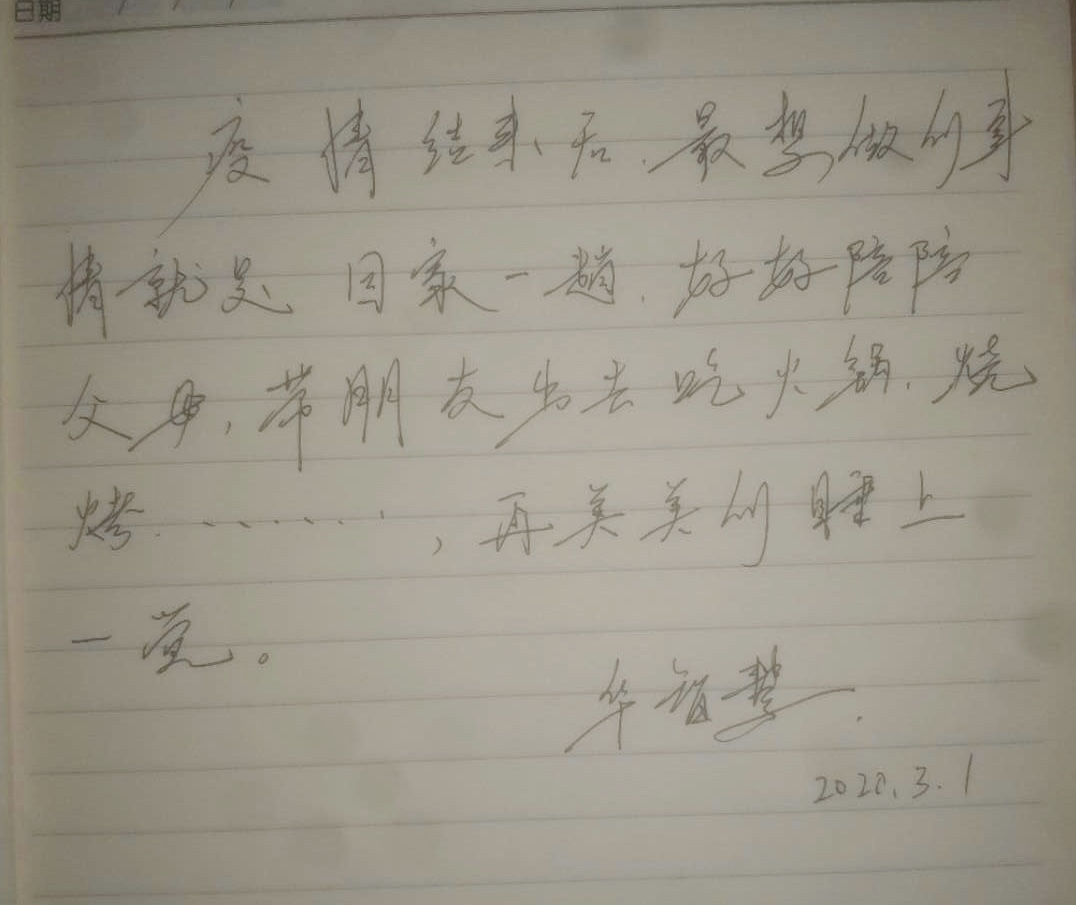 日期
疫情结束后,最想做的事
情就是回家一趟,好好陪陪
父母,带朋友出去吃火锅,烧
烤......,再美美的睡上
一觉。
华智慧.
2020.3.1